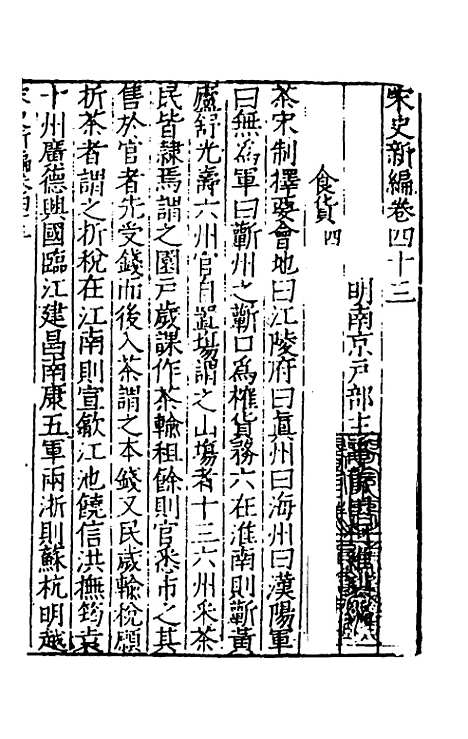 宋史新編卷四十三
明南京戶部主
食貨四
茶宋制擇要會地曰江陵府曰真州曰海州曰漢陽軍
曰無為軍曰蘄州之蘄口為榷貨務六在淮南則蘄黃
廬舒光壽六州官自置場謂之山塲者十三六州采茶
民皆隷焉謂之園戶歲課作茶輸租餘則官悉市之其
售於官者先受錢而後入茶謂之本錢又民歲輸稅願
折茶者謂之折稅在江南則宣歙江池饒信洪撫筠袁
十州廣德興國臨江建昌南康五軍兩浙則蘇杭明越